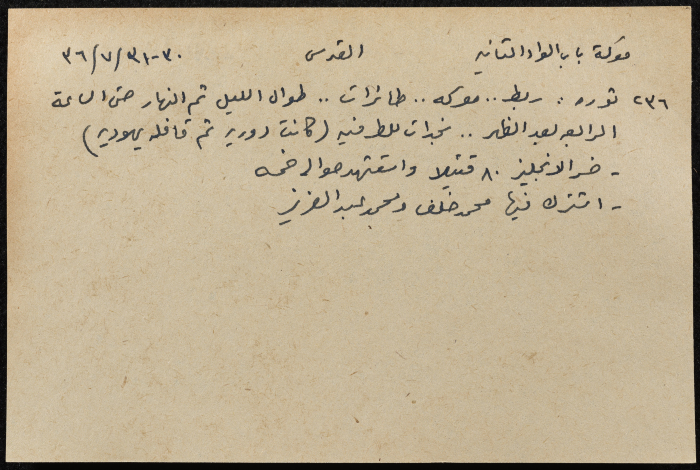 معركة باب الواد الثانيه القدس ٣٠-٣١/٧/٣٦
٢٣٦ ثوره : ربط .. معركه .. طائرات .. طوال الليل ثم النهار حتى الساعة
الرابعه بعد الظهر .. نجدات للطرفين (كانت دوريه ثم قافله يهوديه)
- خسر الانجليز ٨٠ قتيلا واستشهد حوالي خمسه
- اشترك فيها محمد خلف ومحمد عبد العزيز